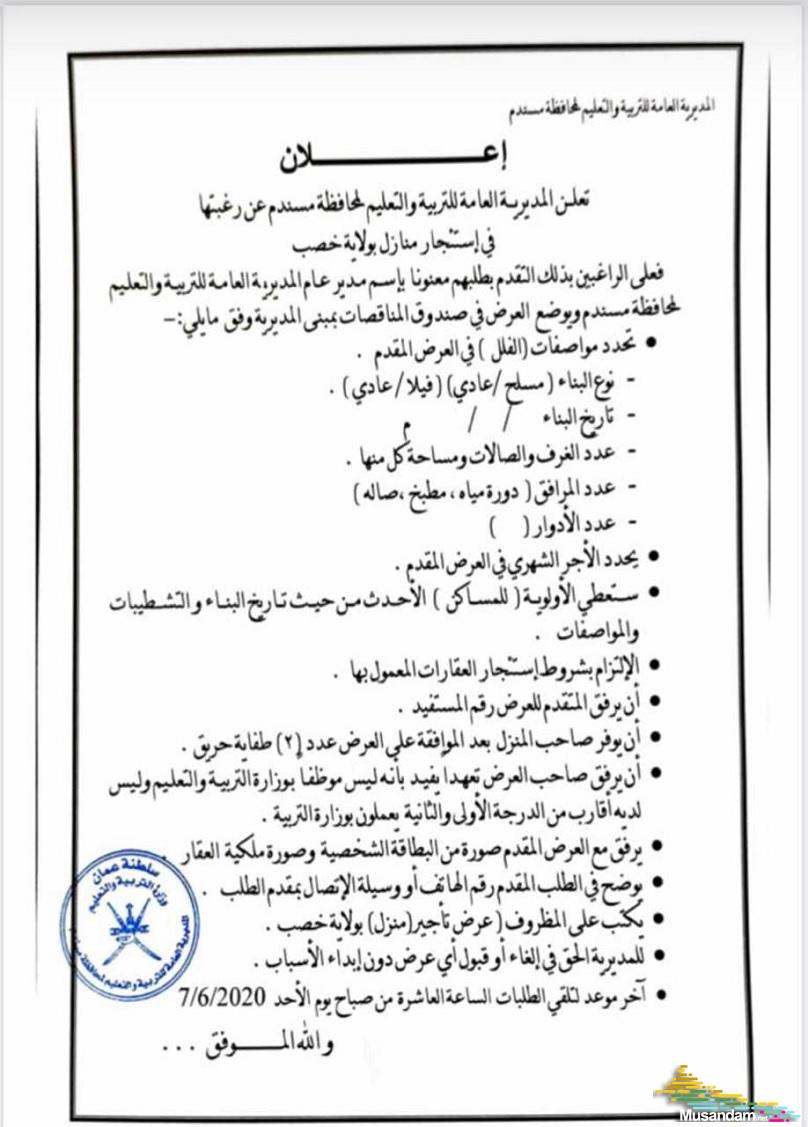 المديرية العامة للتربية والتعليم لمحافظة مسندم
إعـــــــــلان
تعلن المديرية العامة للتربية والتعليم لمحافظة مسندم عن رغبتها
في إستئجار منازل بولاية خصب
فعلى الراغبين بذلك التقدم بطلبهم معنونا بإسم مدير عام المديرية العامة للتربية والتعليم
لمحافظة مسندم ويوضع العرض في صندوق المناقصات بمبنى المديرية وفق مايلي:-
• تحدد مواصفات (الفلل ) في العرض المقدم .
- نوع البناء ( مسلح /عادي) (فيلا/عادي) .
- تاريخ البناء / / م
- عدد الغرف والصالات ومساحة كل منها .
- عدد المرافق ( دورة مياه ، مطبخ ،صاله )
- عدد الأدوار ( )
• يحدد الأجر الشهري في العرض المقدم .
• ستعطي الأولوية ( للمساكن ) الأحدث من حيث تاريخ البناء والتشطيبات
والمواصفات .
• الإلتزام بشروط إستئجار العقارات المعمول بها .
• أن يرفق المتقدم للعرض رقم المستفيد .
• أن يوفر صاحب المنزل بعد الموافقة على العرض عدد (٢) طفاية حريق .
• أن يرفق صاحب العرض تعهدا يفيد بأنه ليس موظفا بوزارة التربية والتعليم وليس
لديه أقارب من الدرجة الأولى والثانية يعملون بوزارة التربية .
• يرفق مع العرض المقدم صورة من البطاقة الشخصية وصورة ملكية العقار
• يوضح في الطلب المقدم رقم الهاتف أو وسيلة الإتصال بمقدم الطلب .
• يكتب على المظروف ( عرض تأجير (منزل) بولاية خصب .
• للمديرية الحق في إلغاء أو قبول أي عرض دون إبداء الأسباب .
• آخر موعد لتلقي الطلبات الساعة العاشرة من صباح يوم الأحد 7/6/2020
والله المـــوفق ...
سلطنة عمان
وزارة التربية والتعليم
المديرية العامة للتربية والتعليم لمحافظة مسندم
Musandam.net